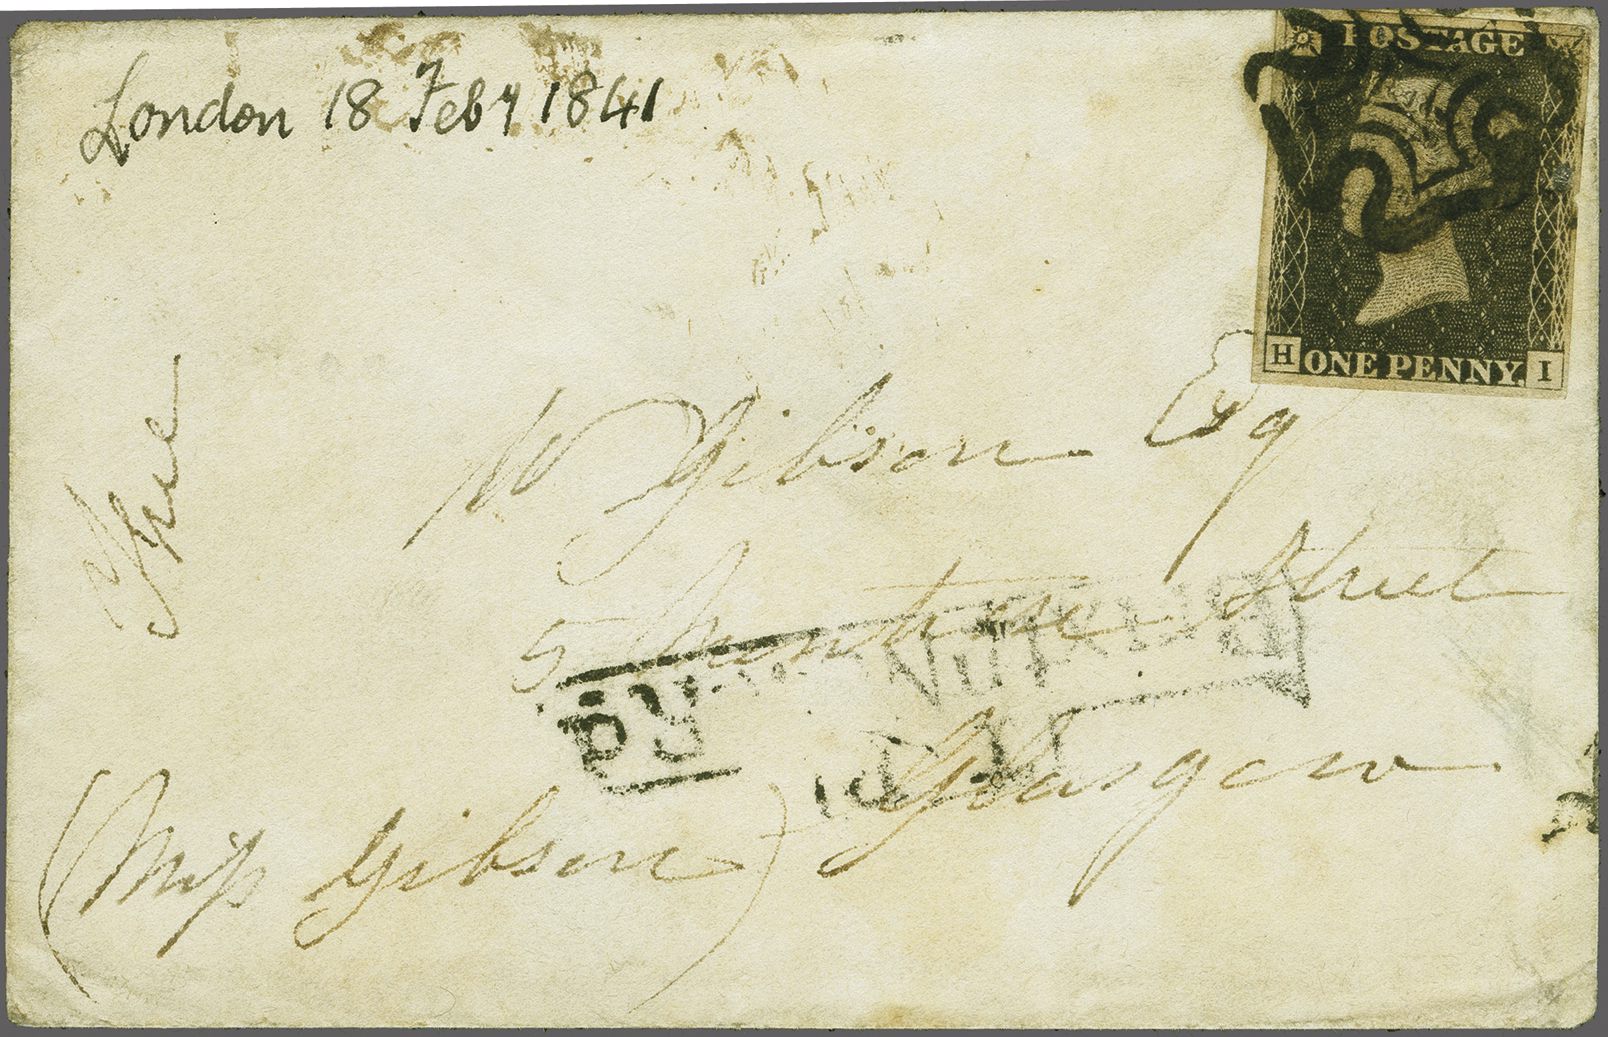 London 18 Feby 1841
POSTAGE
H ONE PENNY. I
Free
W Gibson Esq
5 Montrose Street
Glasgow
(Miss Gibson)
Py